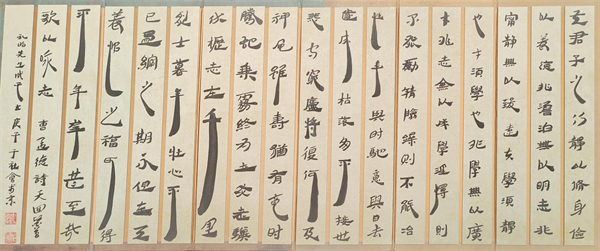 夫君子之行靜以修身儉
以養德非澹泊無以明志非
寧靜無以致遠夫學須靜
也才須學也非學無以廣
才非志無以成學慢則
不能勵精險躁則不能冶
性年與時馳意與日去
遂成枯落多不接世
悲守窮廬將復何及
神龜雖壽猶有竟時
騰蛇乘霧終為土灰老驥
伏櫪志在千里
烈士暮年壯心不
已盈縮之期不但在天
養怡之福可得
永年幸甚至哉
歌以詠志 曹孟德詩 天書
孔明先生誡子書 庚午于京